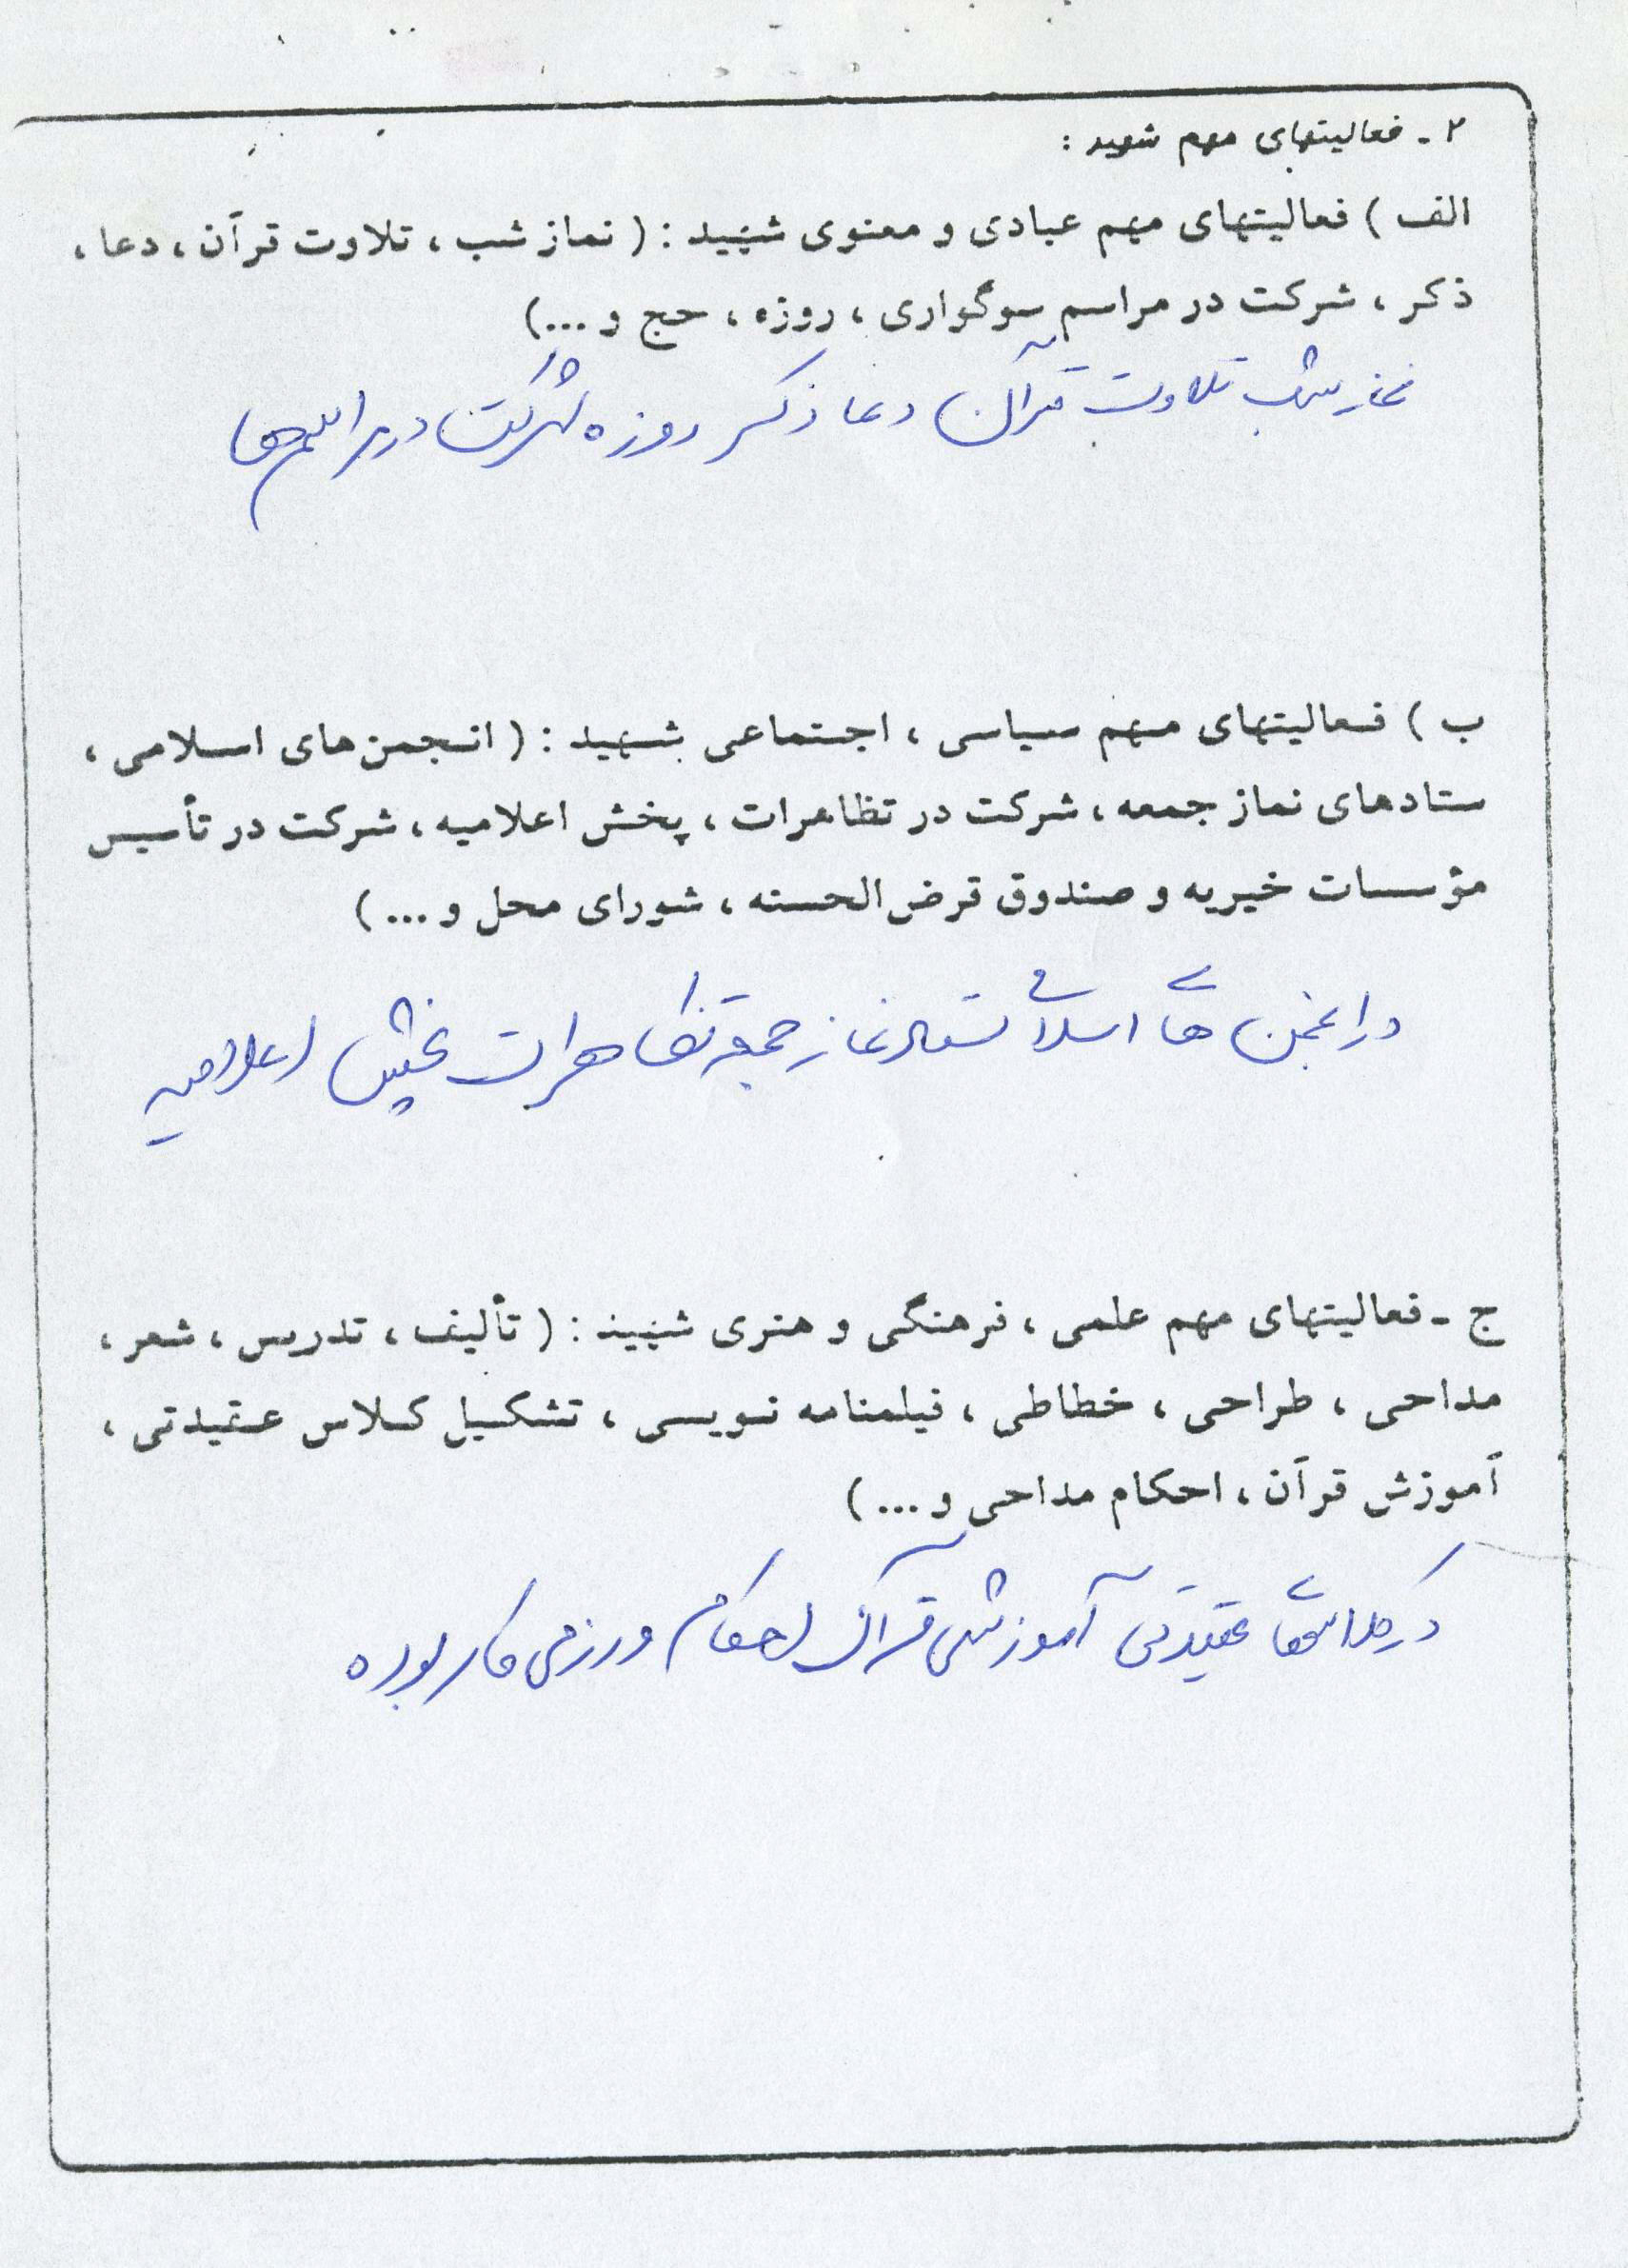 ۲ ـ فعالیتهای مهم شهید :
الف ) فعالیتهای مهم عبادی و معنوی شهید : ( نماز شب ، تلاوت قرآن ، دعا ،
ذکر ، شرکت در مراسم سوگواری ، روزه ، حج و ...)
نماز شب تلاوت قرآن دعا ذکر روزه شرکت در مراسم ها
ب ) فعالیتهای مهم سیاسی ، اجتماعی شهید : ( انجمن‌های اسلامی ،
ستادهای نماز جمعه ، شرکت در تظاهرات ، پخش اعلامیه ، شرکت در تأسیس
مؤسسات خیریه و صندوق قرض‌الحسنه ، شورای محل و ... )
در انجمن های اسلامی ستاد نماز جمعه تظاهرات پخش اعلامیه
ج ـ فعالیتهای مهم علمی ، فرهنگی و هنری شهید : ( تألیف ، تدریس ، شعر ،
مداحی ، طراحی ، خطاطی ، فیلمنامه نویسی ، تشکیل کلاس عقیدتی ،
آموزش قرآن ، احکام مداحی و ... )
در کلاسهای عقیدتی آموزش قرآن احکام ورزمی کار بوده